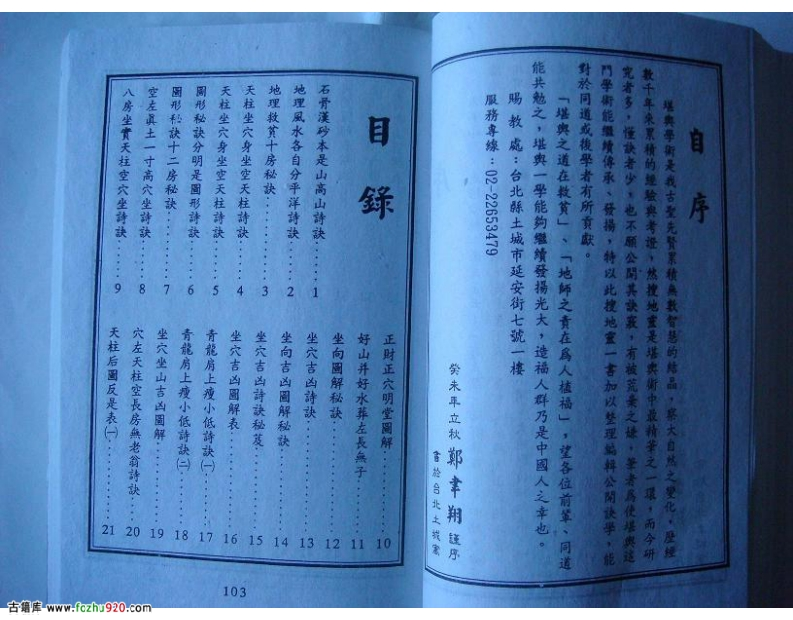 自序
堪輿學術是我古聖先賢累積無數智慧的結晶，察大自然之變化，歷經
數千年來累積的經驗與考證，然搜地靈是堪輿術中最精華之一環，而今研
究者多，懂訣者少，也不願公開其訣竅，有被荒棄之嫌，筆者為使堪輿這
門學術能繼續傳承、發揚，特以此搜地靈一書加以整理編輯公開訣學，能
對於同道或後學者有所貢獻。
「堪輿之道在救貧」、「地師之責在為人植福」，望各位前輩、同道
能共勉之，堪輿一學能夠繼續發揚光大，造福人群乃是中國人之幸也。
賜教處：台北縣土城市延安街七號一樓
服務專線：02-22653479
癸未年立秋 鄭聿翔 謹序
書於台北土城
目錄
石骨漢砂本是山高山詩訣……1
地理風水各自分平洋詩訣……2
地理救貧十房秘訣……3
天柱坐穴身坐空天柱詩訣……4
天柱坐穴身坐空天柱詩訣……5
圖形秘訣分明是圖形詩訣……6
圖形秘訣十二房秘訣……7
空左真土一寸高穴坐詩訣……8
八房坐實天柱空穴坐詩訣……9
正財正穴明堂圖解……10
好山并好水葬左長無子……11
坐向圖解秘訣……12
坐穴吉凶詩訣……13
坐向吉凶圖解秘訣……14
坐穴吉凶詩訣秘笈……15
坐穴吉凶圖解表……16
青龍肩上瘦小低詩訣㈠……17
青龍肩上瘦小低詩訣㈡……18
坐穴坐山吉凶圖解……19
穴左天柱空長房無老翁詩訣……20
天柱后圖反是表㈠……21
103
古籍库 www.fczhu920.com